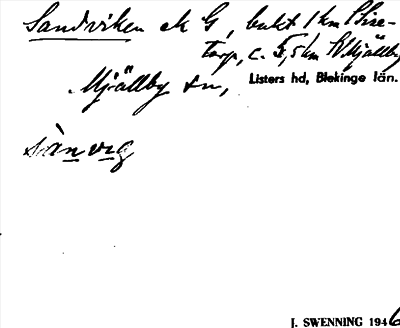 Sandviken ek G, bukt 1 km
torp, c. 5,5 km Mjällby
Mjällby sn, Listers hd, Blekinge län.
sànvig
J. SWENNING 1946